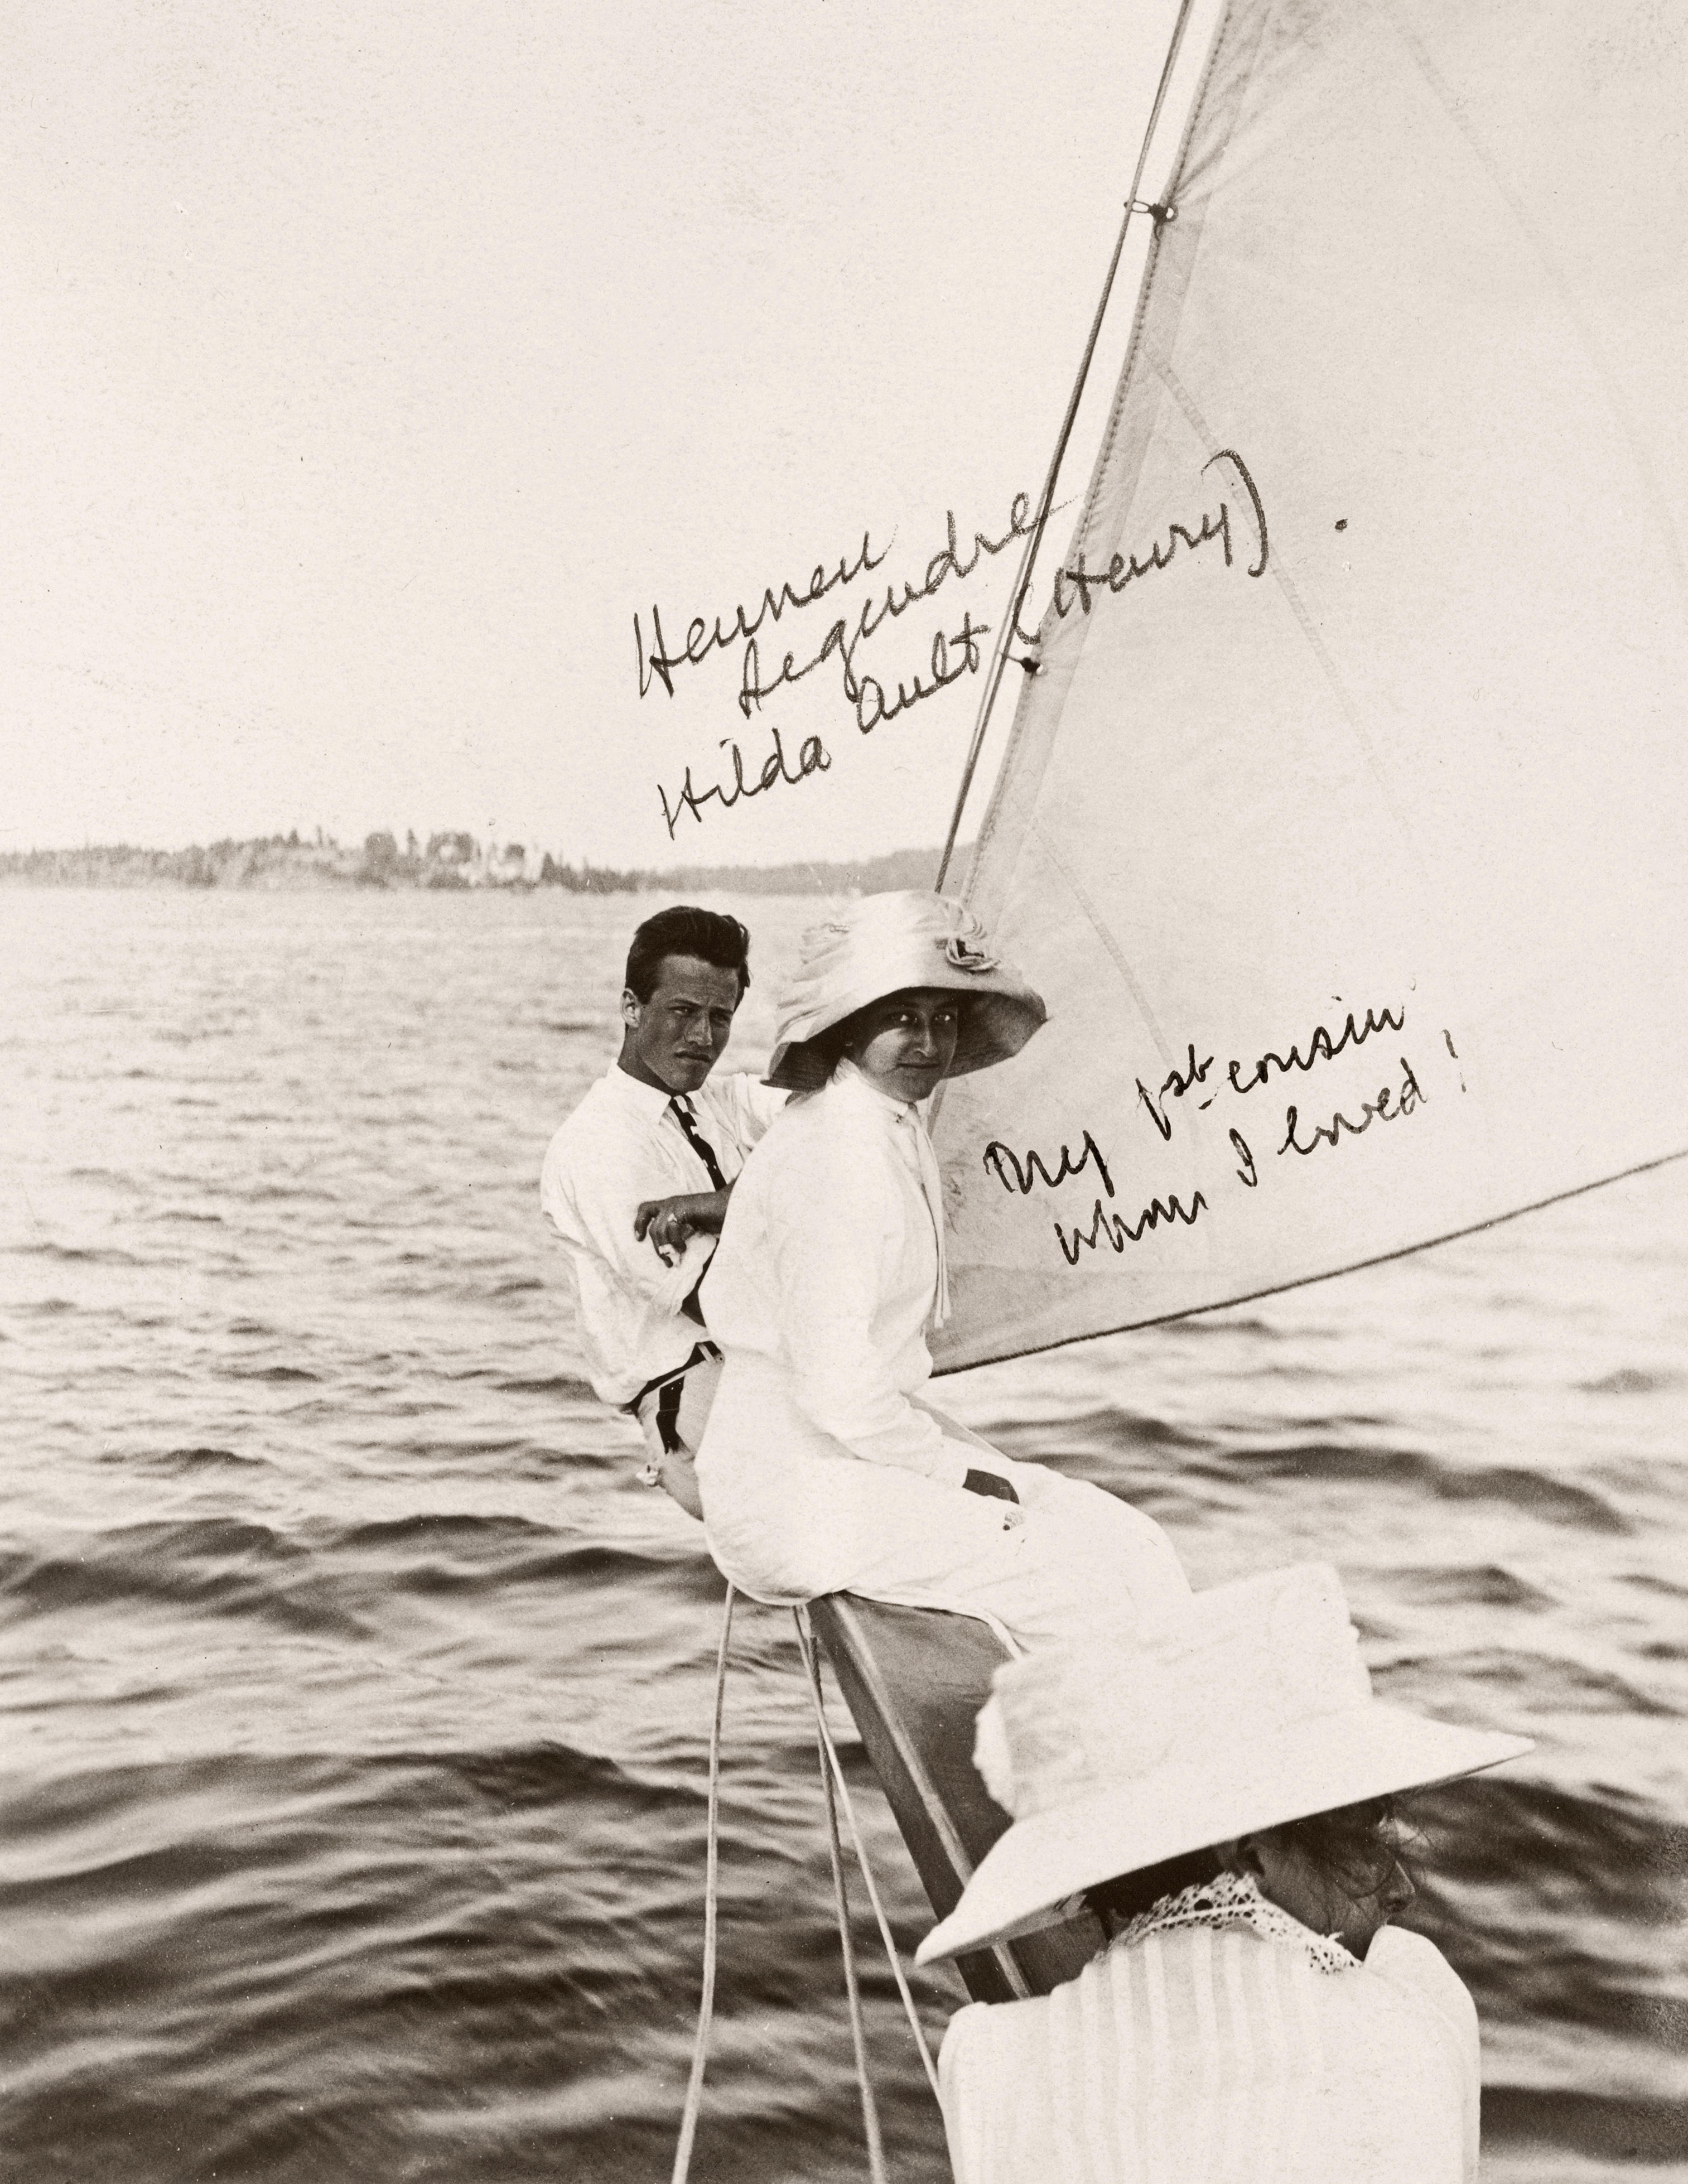 Hennen
Legendre
Hilda Ault (Henry)
My 1st cousin
whom I loved!